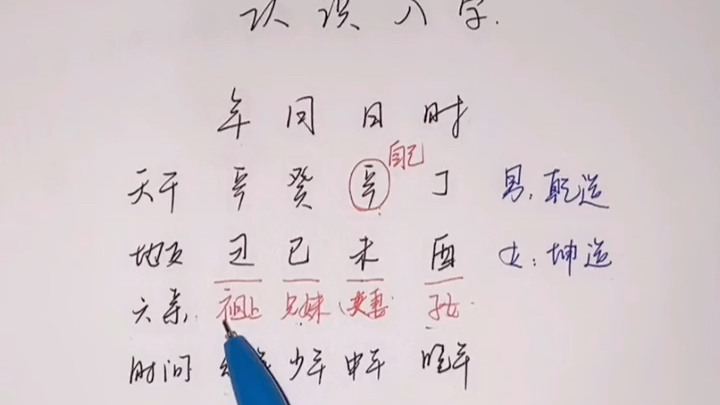 认识八字.
年 月 日 时
自己
天干 辛 癸 辛 丁 男:乾造
地支 丑 巳 未 酉 女:坤造
六亲 祖上 兄妹 夫妻 子女
时间 少年 中年 晚年